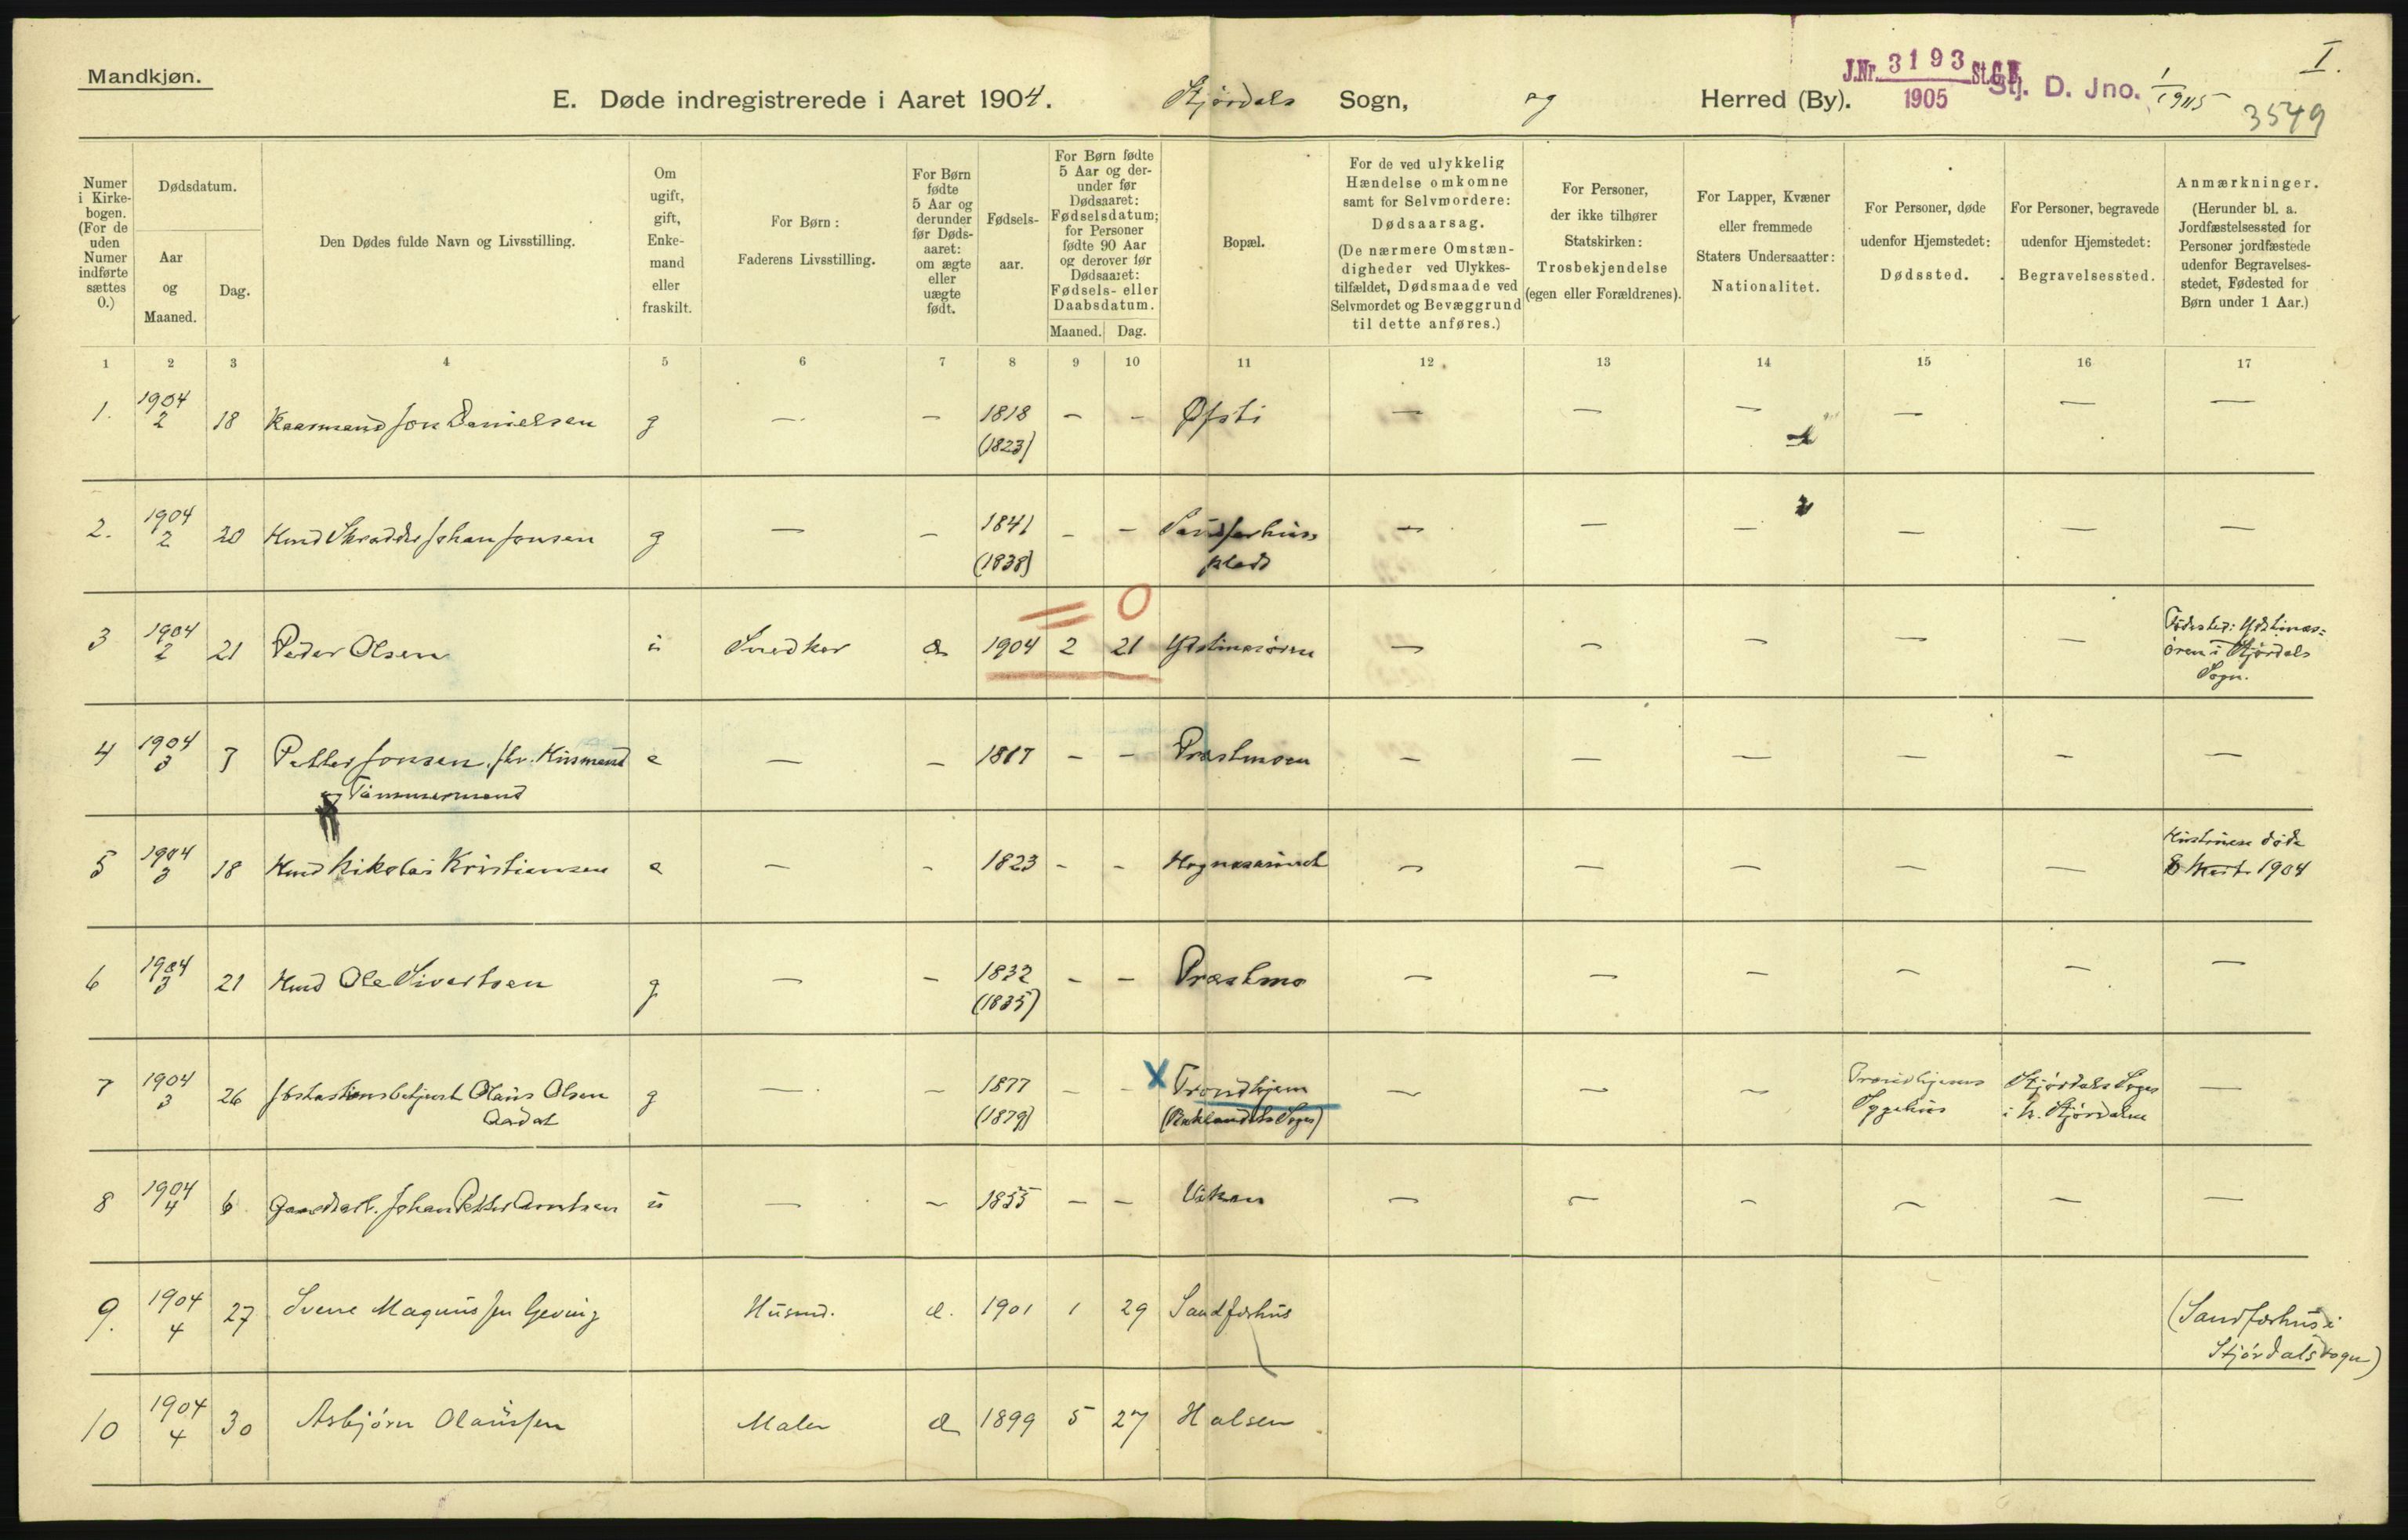 Mandkjøn.
E. Døde indregistrerede i Aaret 1904. Stjørdals Sogn, og Herred (By).
J.Nr. 3193 St.C.B. 1905
Stj. D. Jno. 1/1905
I.
3549
Numer i Kirkebogen. (For de uden Numer indførte sættes 0.)
Dødsdatum.
Aar og Maaned.
Dag.
Den Dødes fulde Navn og Livsstilling.
Om ugift, gift, Enkemand eller fraskilt.
For Børn: Faderens Livsstilling.
For Børn fødte 5 Aar og derunder før Dødsaaret: om ægte eller uægte født.
Fødselsaar.
For Børn fødte 5 Aar og derunder før Dødsaaret: Fødselsdatum; for Personer fødte 90 Aar og derover før Dødsaaret: Fødsels- eller Daabsdatum.
Maaned. Dag.
Bopæl.
For de ved ulykkelig Hændelse omkomne samt for Selvmordere: Dødsaarsag. (De nærmere Omstændigheder ved Ulykkestilfældet, Dødsmaade ved Selvmordet og Bevæggrund til dette anføres.)
For Personer, der ikke tilhører Statskirken: Trosbekjendelse (egen eller Forældrenes).
For Lapper, Kvæner eller fremmede Staters Undersaatter: Nationalitet.
For Personer, døde udenfor Hjemstedet: Dødssted.
For Personer, begravede udenfor Hjemstedet: Begravelsessted.
Anmærkninger. (Herunder bl. a. Jordfæstelsessted for Personer jordfæstede udenfor Begravelsesstedet, Fødested for Børn under 1 Aar.)
1 2 3 4 5 6 7 8 9 10 11 12 13 14 15 16 17
1. 1904 2 18 Kaarmand Jon Danielsen g — — 1818 (1823) — — Øfsti — — — — — —
2. 1904 2 20 Hmd Skrædder Johan Jonsen g — — 1841 (1838) — — Sandferhus plads — — — — — —
3 1904 2 21 Peder Olsen u Snedker æ 1904 2 21 0 — — — — — Fødested: i Stjørdals Sogn.
4 1904 3 7 Petter Jonsen, fhv. Husmand og Tømmermand e — — 1817 — — Præstmoen — — — — — —
5 1904 3 18 Hmd Nikolai Kristiansen e — — 1823 — — — — — — — Hustruen døde 8 1904
6 1904 3 21 Hmd Ole Sivertsen g — — 1832 (1835) — — Præstmo — — — — — —
7 1904 3 26 Olaus Olsen Aadal g — — 1877 (1879) — — X Trondhjem (Baklandets Sogn) — — — Trondhjems Sygehus Stjørdals Sogn i N. Stjørdalen —
8 1904 4 6 Johan Petter Arntsen u — — 1855 — — Viken — — — — — —
9. 1904 4 27 Sverre Magnussen Geving Husmd. æ. 1901 1 29 Sandferhus (Sandferhus i Stjørdals sogn)
10 1904 4 30 Asbjørn Olaussen Maler æ 1899 5 27 Halsen